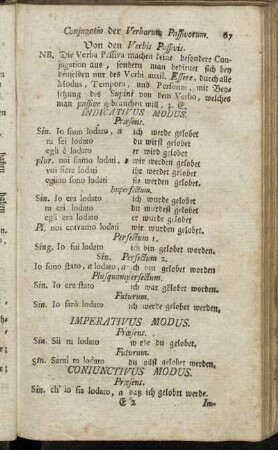 Conjugatio der Verborum Passivorum. 67
Von den Verbis Passivis.
NB. Die Verba Passiva machen keine besondere Con-
jugation aus, sondern man bedienet sich bey
denselben nur des Verbi auxil. Essere, durch alle
Modus, Tempora, und Personen, mit Bey-
setzung des Supini von dem Verbo, welches
man passive gebrauchen will, z. E.
INDICATIVUS MODUS.
Præsens.
Sin. Io sono lodato, a ich werde gelobet
tu sei lodato du wirst gelobet
egli è lodato er wird gelobet
plur. noi siamo lodati, e wir werden gelobet
voi siete lodati ihr werdet gelobet
eglino sono lodati sie werden gelobet.
Imperfectum.
Sin. Io era lodato ich wurde gelobet
tu eri lodato du wurdest gelobet
egli era lodato er wurde gelobet
Pl. noi eravamo lodati wir wurden gelobet
Perfectum 1.
Sing. Io fui lodato ich bin gelobet worden.
Sin. Perfectum 2.
Io sono stato, a lodato, a ich bin gelobet worden
Plusquamperfectum.
Sin. Io era stato lodato ich war gelobet worden.
Futurum.
Sin. Io sarò lodato ich werde gelobet werden.
IMPERATIVUS MODUS.
Præsens.
Sin. Sii tu lodato werde du gelobet.
Futurum.
Sin. Sarai tu lodato du sollst gelobet werden.
CONJUNCTIVUS MODUS.
Præsens.
Sin. ch' io sia lodato, a daß ich gelobet werde.
E 2 Im-